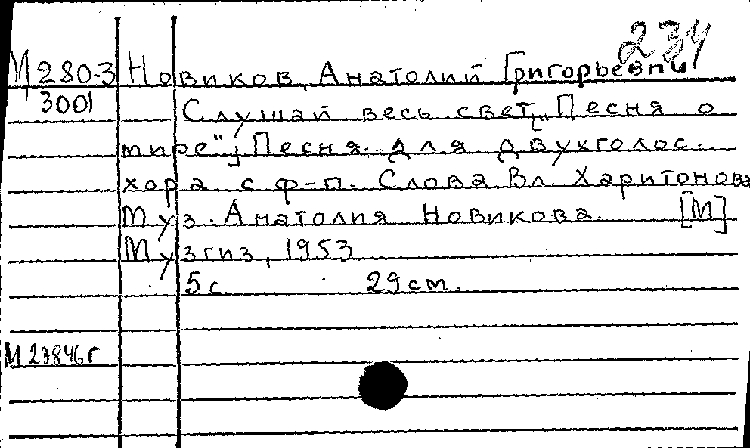 234
М280-3 Новиков, Анатолий Григорьевич
3001 Слушай весь свет, "Песня о
мире"; Песня для двухголос.
хора с ф-п. Слова Вл Харитонова
Муз. Анатолия Новикова [М]
Музгиз, 1953
5 с 29 см.
М 27846 г